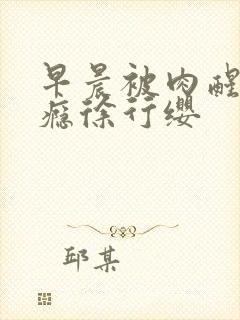 早晨被肉醒
瘾徐行缨
邱某